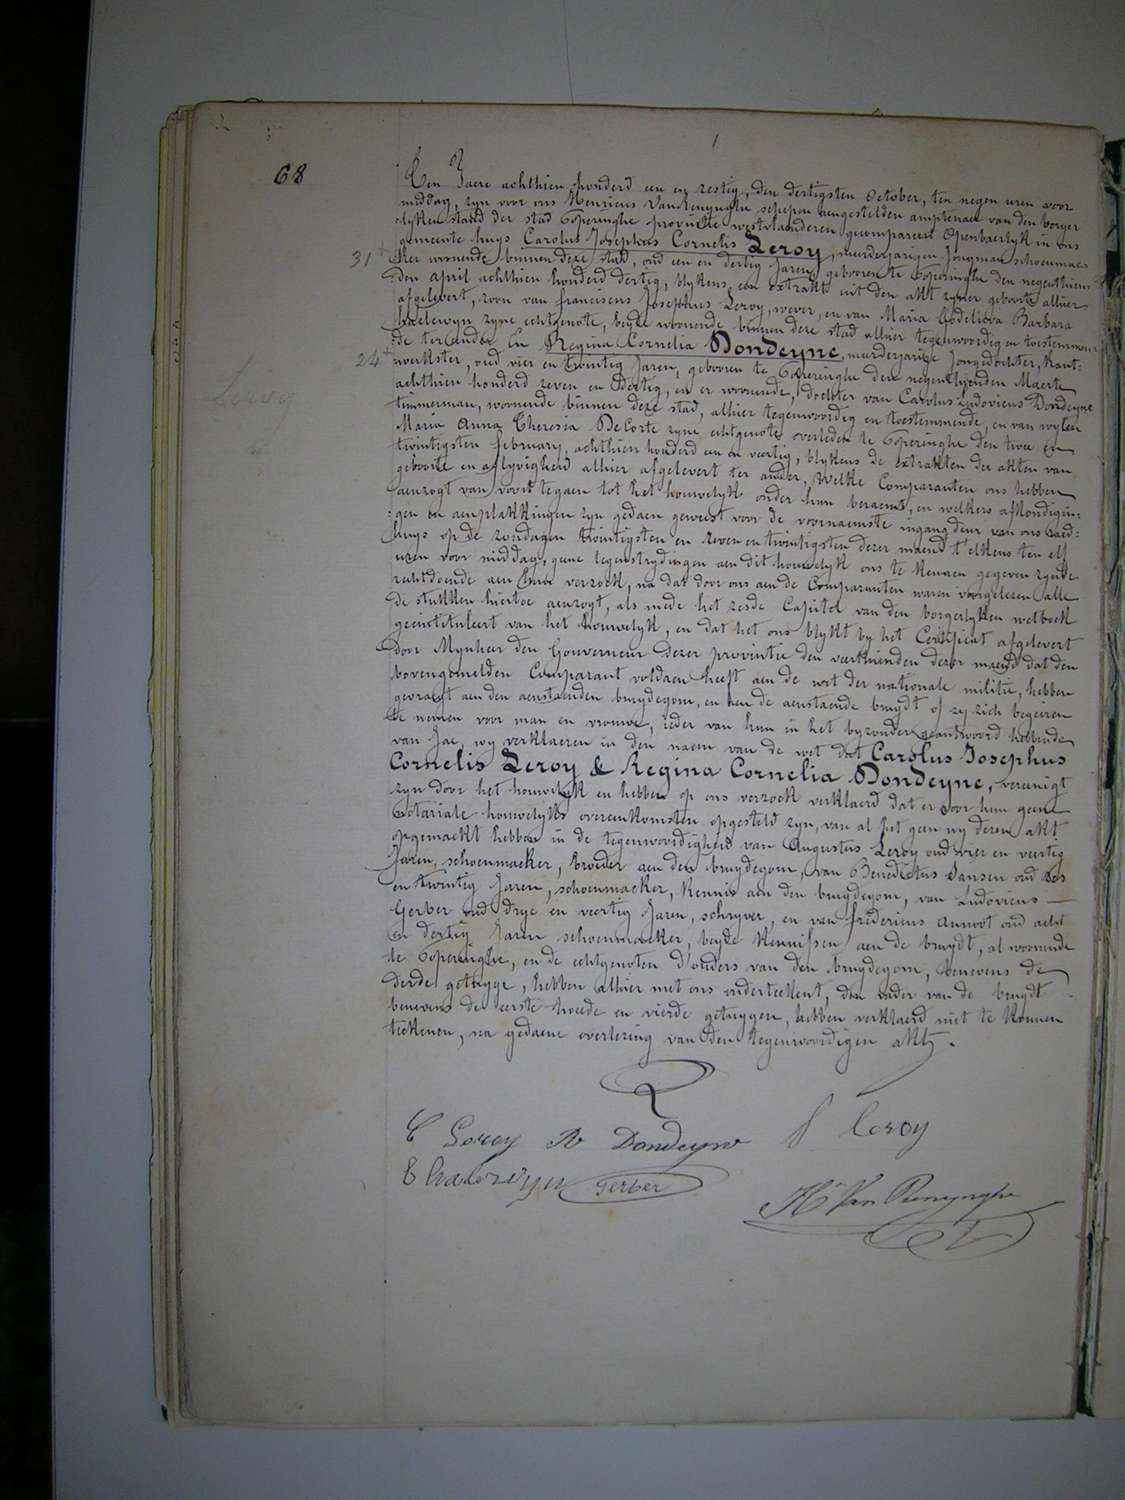 68
Ten Jaere achthien honderd een en zestig, den dertigsten October, ten negen uren voor
middag, zyn voor ons Henricus Vanrenynghe schepen aengestelden amptenaer van den borger
lyken stand der stad Poperinghe provincie westvlaanderen gecompareert Openbaerlyk in ons
gemeente huys Carolus Josephus Cornelis Leroy, meerderjarigen Jongman schoenmaeker
31 woonende binnen deze stad, oud een en dertig Jaren, gebooren te Poperinghe den negenthiens
den april achthien honderd dertig, blykens een extrakt uit den akt zyner geboorte alhier
afgelevert, zoon van franciscus Josephus Leroy, wever, en van Maria Godelieva Barbara
Haelewyn zyne echtgenote, beyde woonende binnen deze stad alhier tegenwoordig en toestemmen
de ter ander En Regina Cornelia Dondeyne, meerderjarige Jongedochter, kant-
24 werkster, oud vier en twintig Jaren, gebooren te Poperinghe den negenthienden Maerte
achthien honderd zeven en Dertig, en er woonende, dochter van Carolus Ludovicus Dondeyne
Leroy
timmerman, woonende binnen deze stad, alhier tegenwoordig en toestemmende, en van wylen
Maria Anna Theresia DeCorte zyne echtgenote overleden te Poperinghe den twee en
twintigsten february, achthien honderd een en veertig, blykens de extrakten der akten van
geboorte en aflyvigheid alhier afgelevert ter ander, Welke Comparanten ons hebben
aenzogt van voort tegaen tot het houwelyk onder hun beraemt, en welkers afkondigin-
gen en aenplakkingen zyn gedaen geweest voor de voornaemste ingangdeur van ons raed-
huys op de zondagen twintigsten en zeven en twintigsten dezer maend t'elkens ten elf
uren voor middag, geene tegenstrydingen aen dit houwelyk ons te kennen gegeven zynde
rechtdoende aen hun verzoek, na dat door ons aen de Comparanten waren voorgelezen alle
de stukken hiertoe aenzogt, als mede het zesde Capitel van den borgerlyken wetboek
geintituleert van het houwelyk, en dat het ons blykt by het Certificat afgelevert
door Mynheer den Gouverneur dezer provintie den veerthienden dezer maend dat den
bovengemelden Comparant voldaen heeft aen de wet der nationale militie, hebben
gevraegt aen den aenstaenden bruydegom, en aen de aenstaende bruydt of zy zich begeiren
te nemen voor man en vrouwe, ieder van hun in het byzonder geantwoord hebbende
van Jae, wy verklaeren in den naem van de wet dat Carolus Josephus
Cornelis Leroy & Regina Cornelia Dondeyne, vereenigt
zyn door het houwelyk en hebben op ons verzoek verklaerd dat er door hun geene
Notariale houwelyks overeenkomsten opgesteld zyn, van al het geen wy dezen akt
opgemaekt hebben in de tegenwoordigheid van Augustus Leroy oud vier en veertig
Jaren, schoenmaeker, broeder aen den bruydegom, van Benedictus Jansen oud zes
en twintig Jaren, schoenmaeker, kennis aen den bruydegom, van Ludovicus
Gerber oud drye en veertig Jaren, schryver, en van fredericus Annoot oud acht
en dertig Jaren schoenmaeker, beyde kennissen aen de bruydt, al woonende
te Poperinghe, en de echtgenoten d'ouders van den bruydegom, benevens de
derde getuyge, hebben alhier met ons onderteekent, den vader van de bruydt
benevens de eerste tweede en vierde getuygen, hebben verklaerd niet te konnen
teekenen, na gedaene overlezing van den tegenwoordigen akt.
C Leroy R Dondeyne f leroy
B halewyn Gerber
Hi Van Renynghe